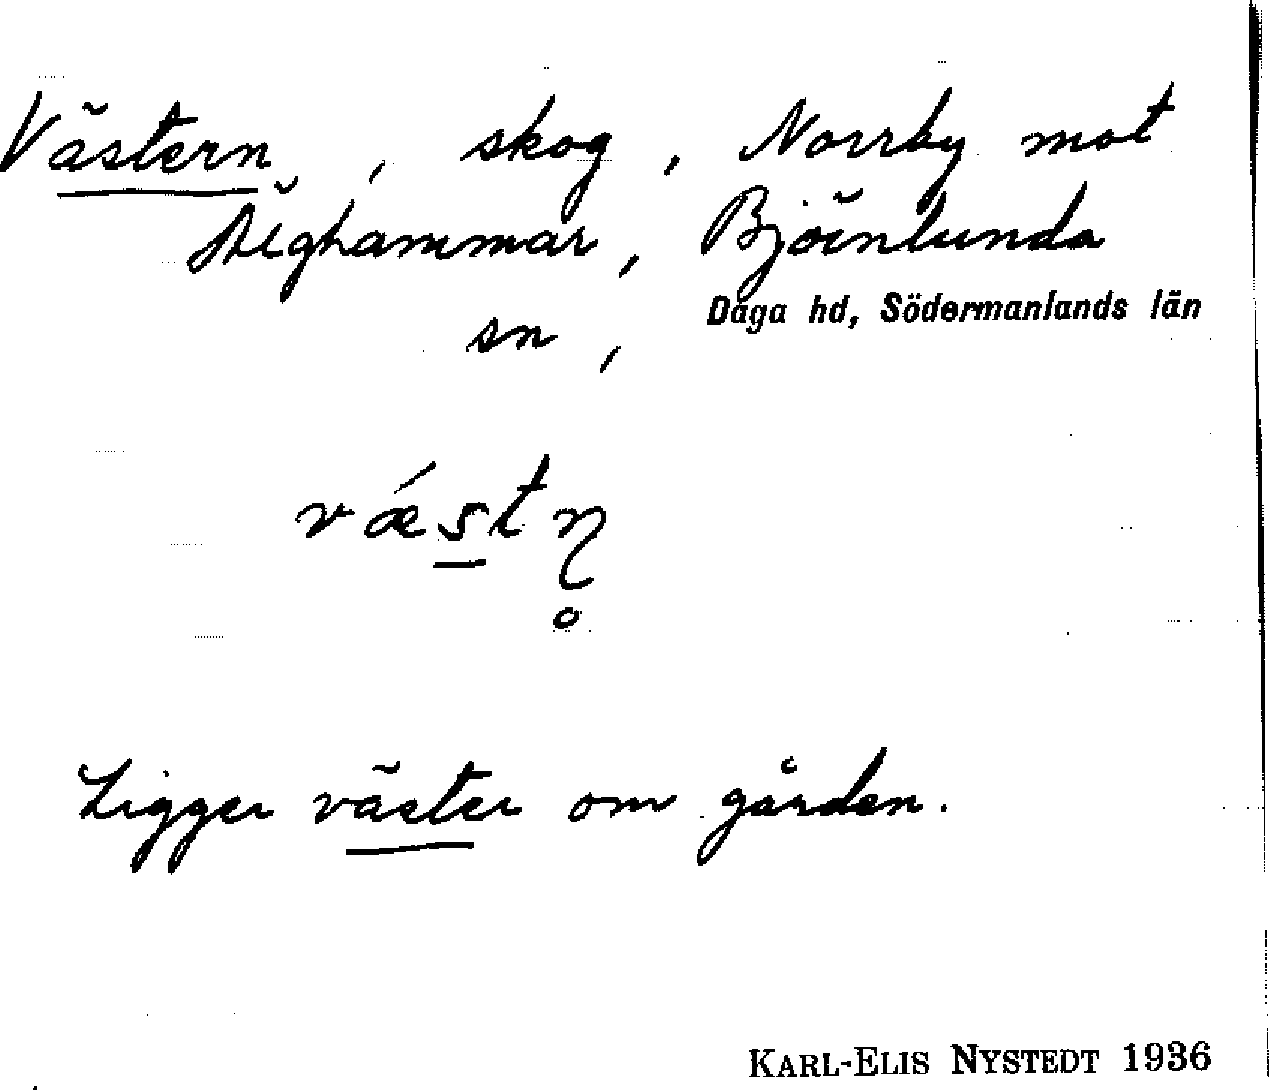 Västern, skog, Norrby mot
Älghammar, Björnlunda
sn, Daga hd, Södermanlands län
vǽstn̥
Ligger väster om gården.
KARL-ELIS NYSTEDT 1936